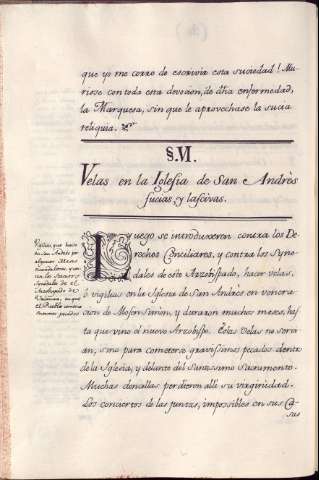 que yo me corro de escrivir esta suciedad! Mu-
riose con toda esta devocion, de dha enfermedad,
la Marquesa, sin que le aprovechase la sucia
reliquia.
§. VI.
Velas en la Iglesia de San Andrès
sucias, y lascivas.
Luego se introduxeron contra los De-
rechos Conciliares, y contra los Syno-
dales de este Arzobispado, hacer velas,
ò vigilias en la Iglesia de San Andrès en venera-
cion de Mosen Simòn, y duraron muchos meses, has
ta que vino el nuevo Arzobispo. Estas Velas no serv
an, sino para cometer gravissimos pecados dentro
de la Iglesia, y delante del Santissimo Sacramento.
Muchas doncellas perdieron allì su virginidad.
Los conciertos de las juntas, impossibles en sus Ca-
sas
Vigilias, que hacen
en San Andrès por
algunos Meses
contra los Sacros
Synodales de el
Arzobispado de
Valencia, en que
el Pueblo comete
enormes pecados